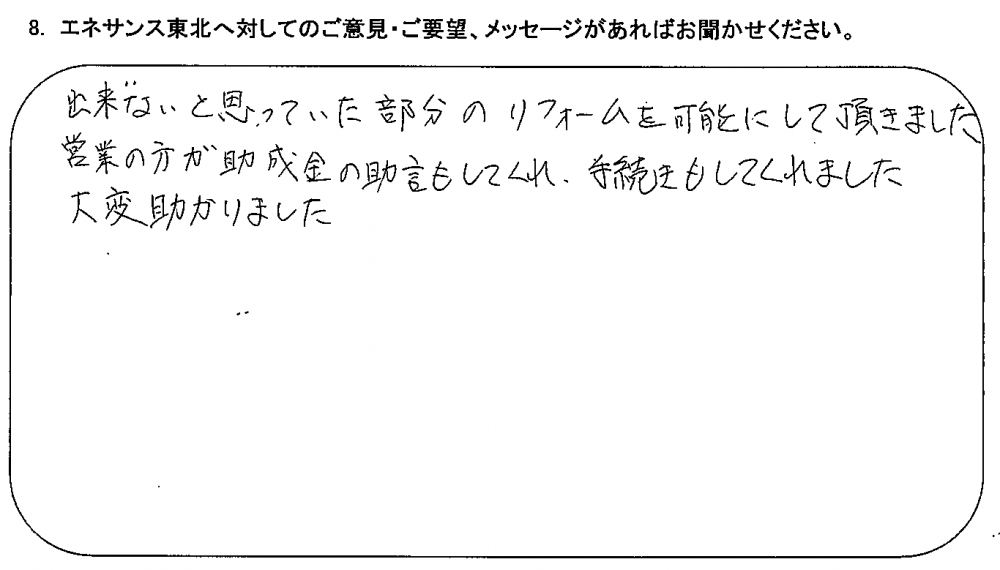 8. エネサンス東北へ対してのご意見・ご要望、メッセージがあればお聞かせください。
出来ないと思っていた部分のリフォームを可能にして頂きました
営業の方が助成金の助言もしてくれ、手続きもしてくれました
大変助かりました